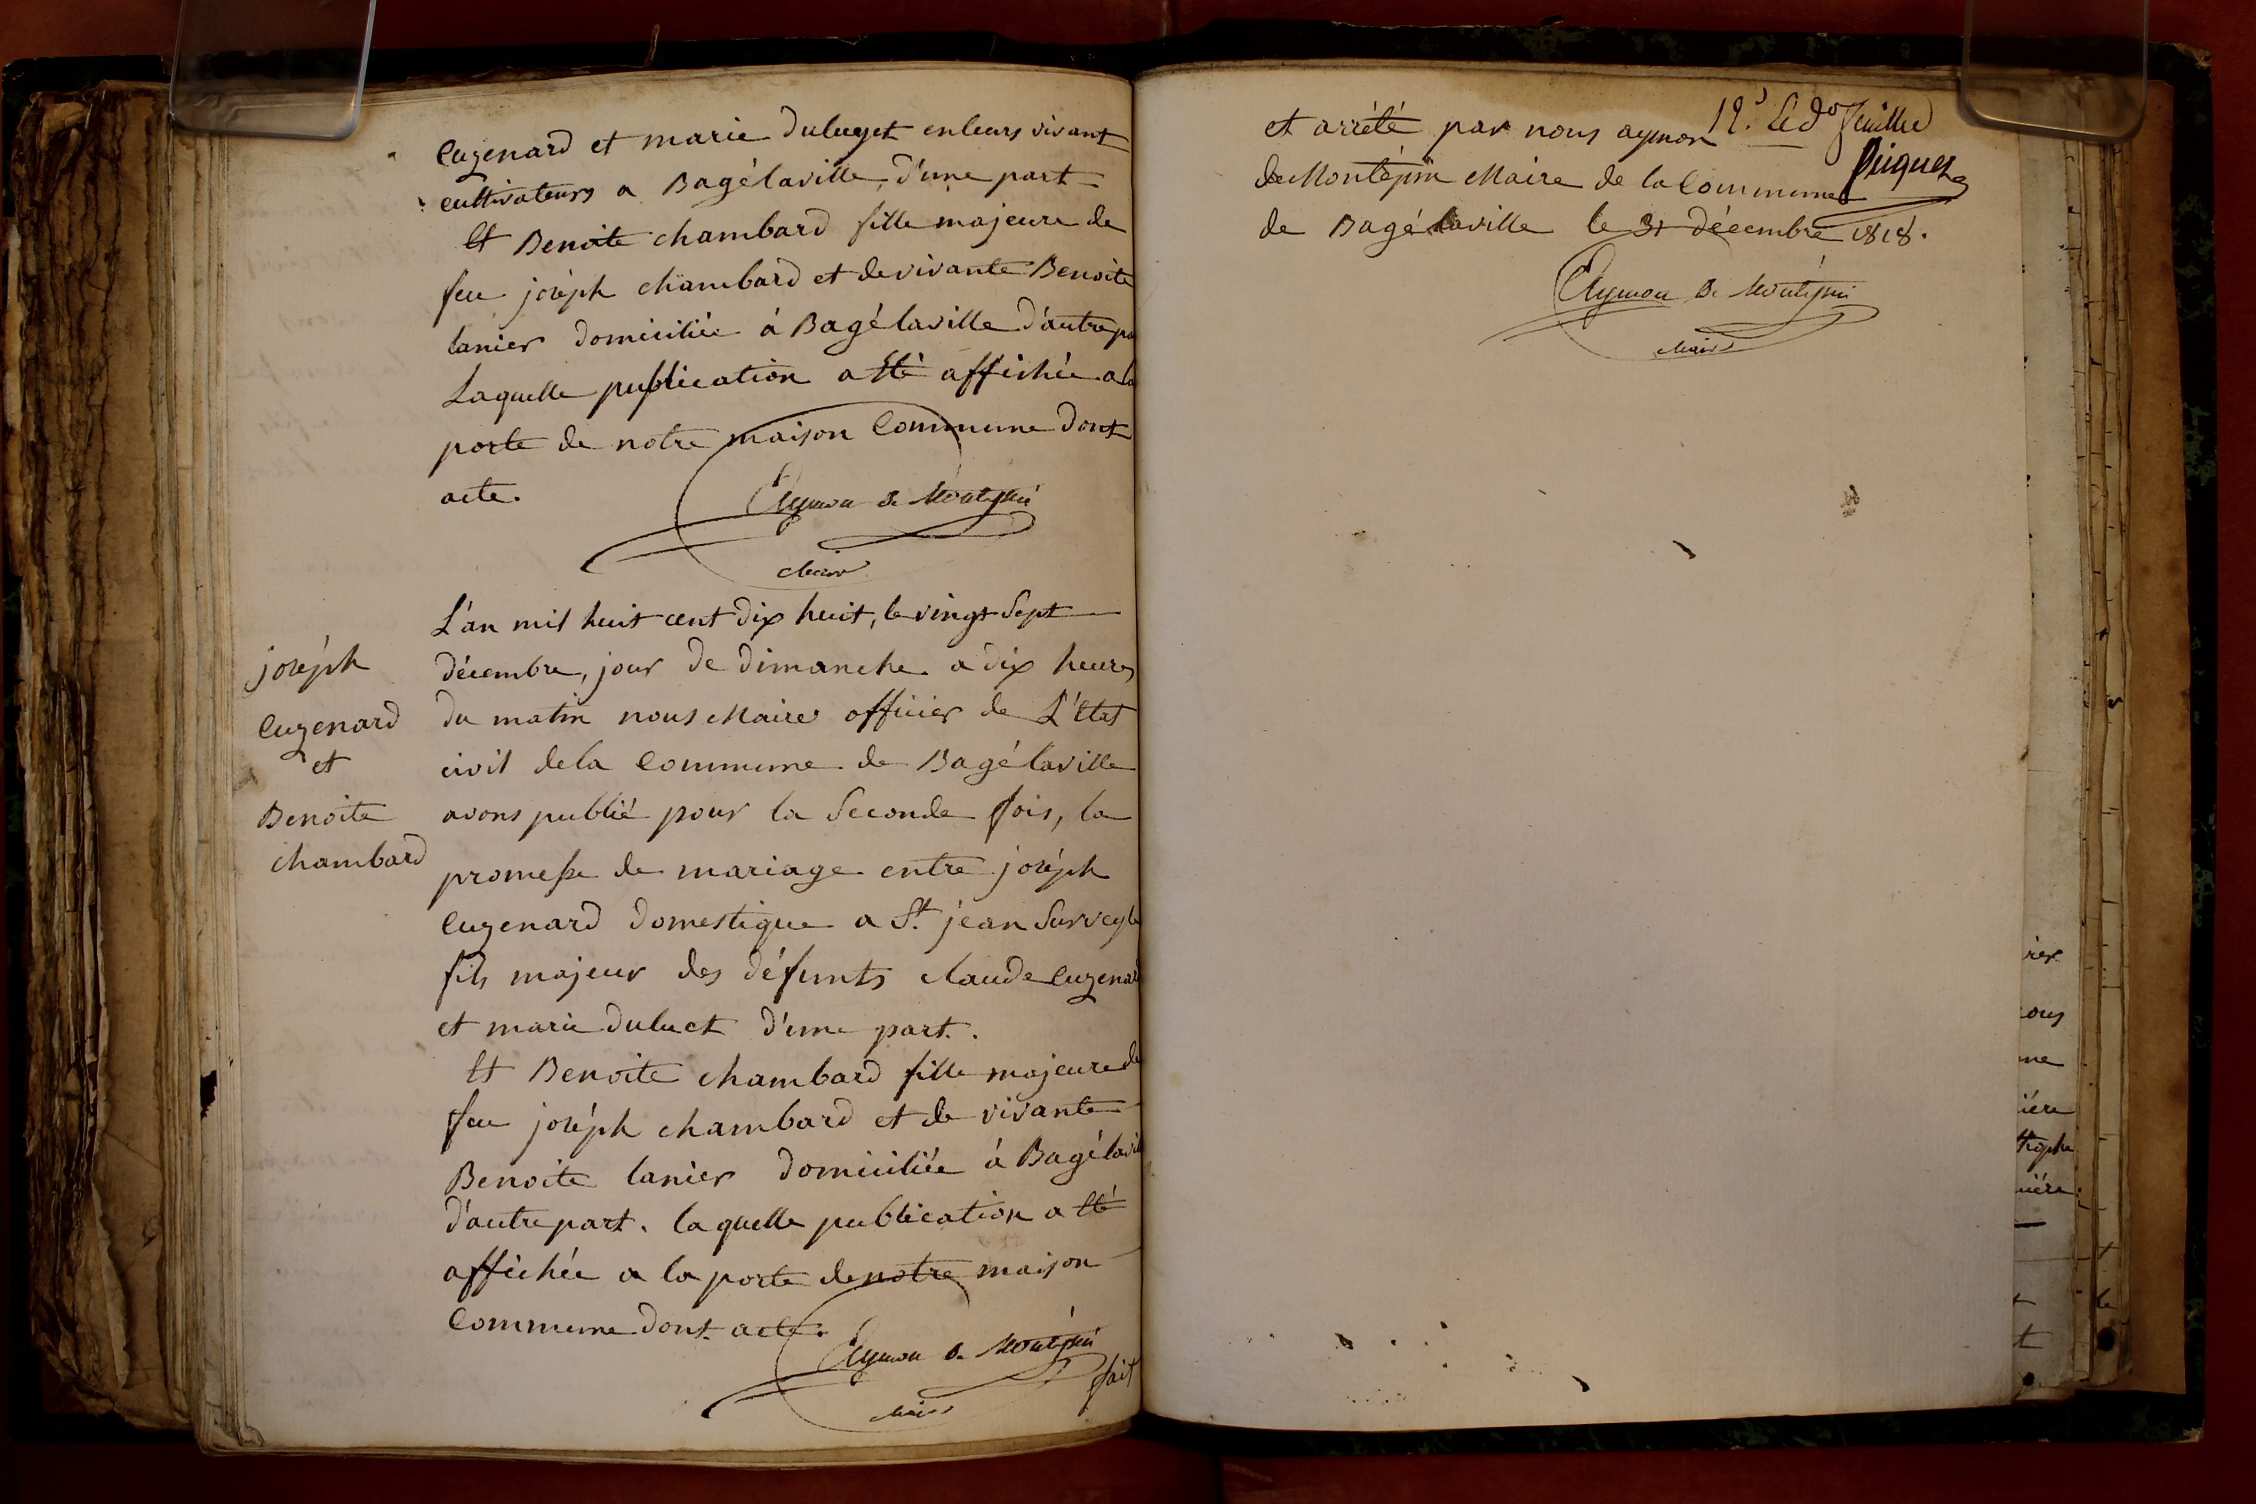 Cuzenard et marie duluyet enleurs vivant
cultivateurs a Bagélaville, d'une part
Et Benoite chambard fille majeure de
feu joséph chambard et devivante Benoite
lanier domiciliée á Bagélaville d'autre pa
Laquelle publication a Eté affichée a la
porte de notre maison Commune dont
acte.
Aymon de Montépin
Maire
joséph
Cuzenard
et
Benoite
chambard
L'an mil huit cent dix huit, le vingt Sept
décembre, jour de dimanche a dix heures
du matin nous Maire officier de L'Etat
civil dela Commune de Bagélaville
avons publié pour la Seconde fois, la
promesse de mariage entre joséph
Cuzenard domestique a St. jean Surveyle
fils majeur des défunts claude Cuzenard
et marie duluet d'une part.
Et Benoite chambard fille majeure de
feu joséph chambard et de vivante
Benoite lanier domiciliée á Bagélavill
d'autre part. laquelle publication a Eté
affichée a la porte denotre maison
Commune dont acte.
Aymon de Montépin
Maire
fait
12.e Et dr feuillet
et arrété par nous aymon
deMontépin Maire de la Commune
de Bagélaville le 31 décembre 1818.
Aymon de Montépin
Maire
ous
me
iére